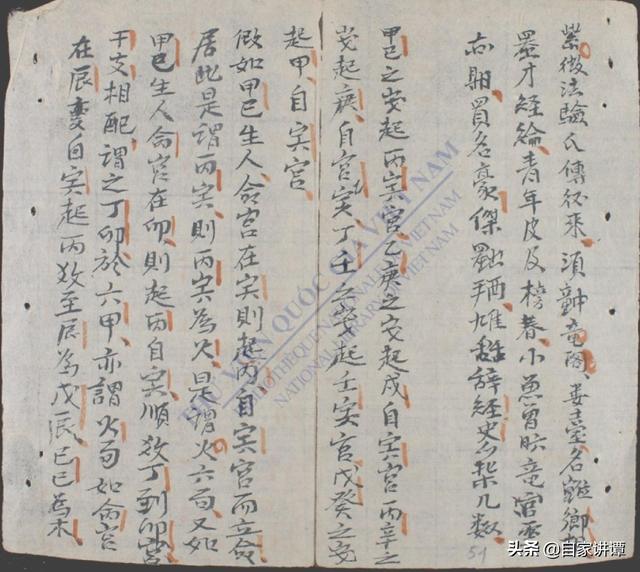 紫微法驗傳從來須
才經綸青年皮及榜春小
買名豪傑雄辞經史几数
甲己之歲起丙寅宮乙庚之歲起戊自寅宮丙辛之
歲起庚自官寅丁壬之歲起壬寅官戊癸之歲
起甲自寅宮
假如甲己生人命宮在寅則起丙自寅宮而立命
居此是謂丙寅則丙寅為火是謂火六局又如
甲己生人命宮在卯則起丙自寅順数丁到卯宮
干支相配謂之丁卯於六甲亦謂火局如命宮
在辰自寅起丙数至辰為戊辰己巳為木
51
THƯ VIỆN QUỐC GIA VIỆT NAM
BIBLIOTHÈQUE NATIONALE DU VIETNAM
NATIONAL LIBRARY OF VIETNAM
头条 @自家讲谭